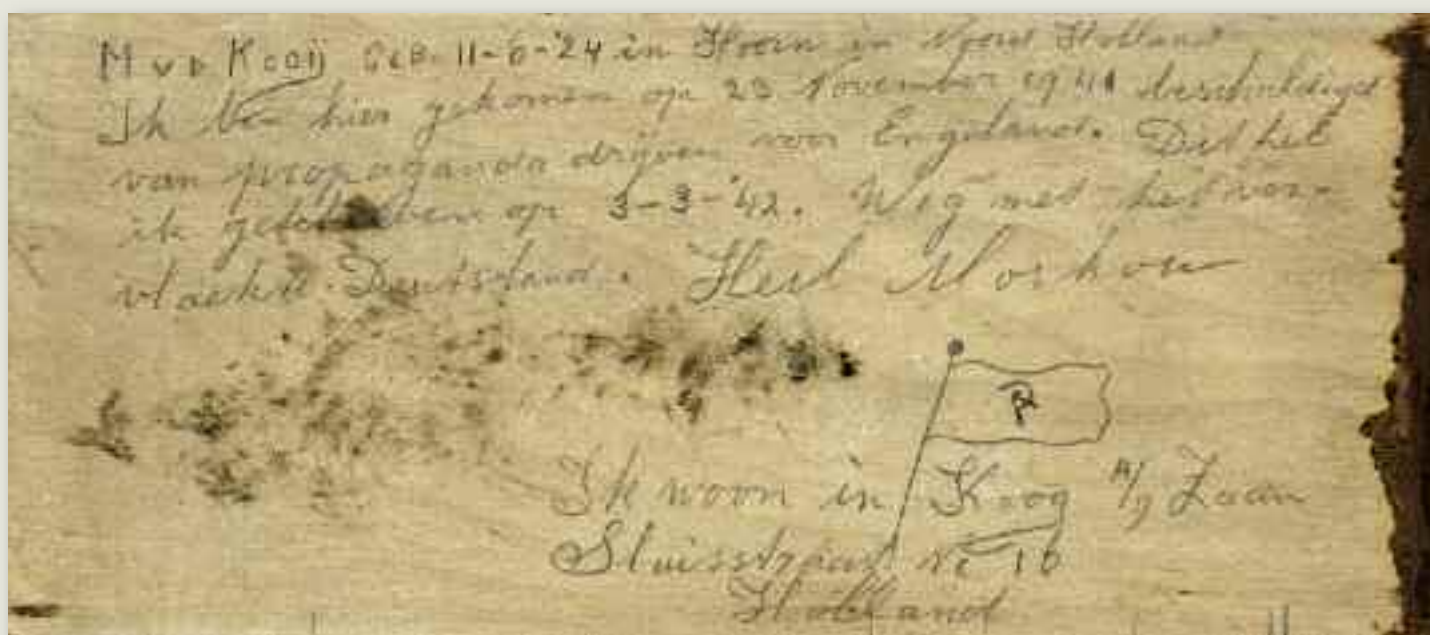 M v D Kooij GEB. 11-6-'24 in Hoorn in Noord Holland
Ik ben hier gekomen op 23 November 1941 beschuldigd
van propaganda drijven voor Engeland. Dit heb
ik geschreven op 3-3-'42. Weg met het ver-
vlockte Deutsland. Heil Moskou
R
Ik woon in Koog A/d Zaan
Sluisstraat no 10
Holland